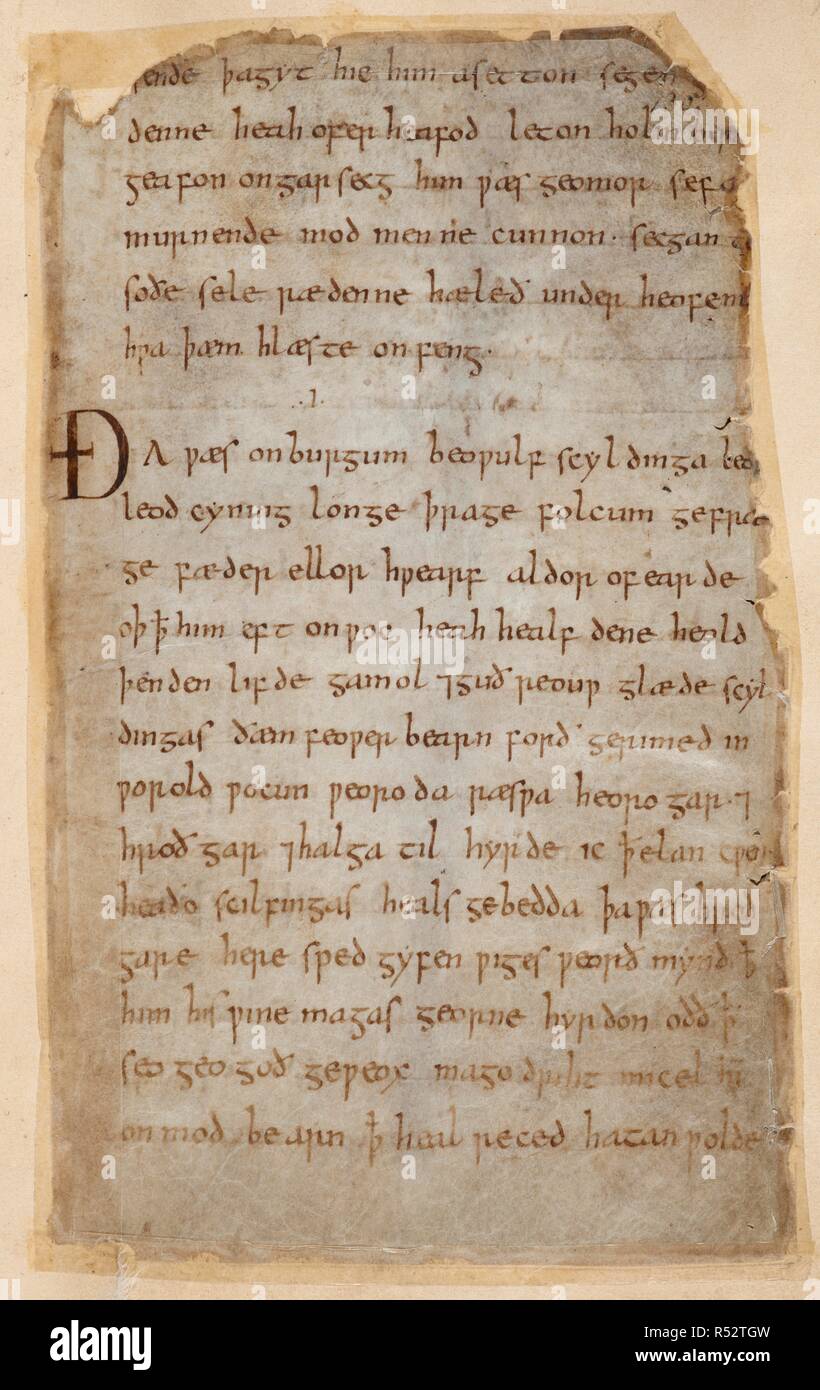 sende þagyt hie him asetton segen
denne heah ofer heafod leton holm
geafon ongarsecg him ƿæs geomor sefa
murnende mod men ne cunnon· secgan
soðe sele rædenne hæleð under heofen
hƿa þæm hlæste onfeng·
·I·
ÐA ƿæs onburgum beoƿulf scyldinga beo
leod cyning longe þrage folcum gefræ
ge fæder ellor hƿearf aldor ofearde
oþ ꝥ him eft onƿoc heah healfdene heold
þenden lifde gamol ⁊guðreouƿ glæde scyl
dingas ðæm feoƿer bearn forð gerimed in
ƿorold ƿocun ƿeoroda ræsƿa heorogar·⁊
hroðgar ⁊halga til hyrde ic ꝥ elan cƿen
heaðo scilfingas healsgebedda þaƿæs hroð
gare here sped gyfen ƿiges ƿeorð mynd ꝥ
him his ƿine magas georne hyrdon oðð ꝥ
seo geogoð geƿeox mago driht micel him
onmod bearn ꝥ heal reced hatan ƿolde
alamy
Image ID: R52TGW
www.alamy.com